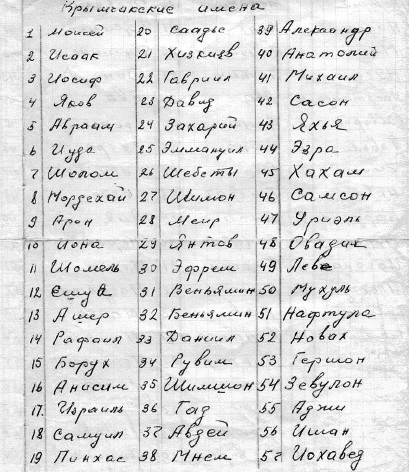 Крымчакские имена
1 Моисей 20 Саадье 39 Александр
2 Исаак 21 Хизкияв 40 Анатолий
3 Иосиф 22 Гавриил 41 Михаил
4 Яков 23 Давид 42 Сасон
5 Авраам 24 Захарий 43 Яхья
6 Иуда 25 Эммануил 44 Эзра
7 Шолом 26 Шебеты 45 Хахам
8 Мордехай 27 Шимон 46 Самсон
9 Арон 28 Меир 47 Уриэль
10 Иона 29 Янтов 48 Овадия
11 Шомель 30 Эфрем 49 Леве
12 Ешуа 31 Веньямин 50 Мухуль
13 Ашер 32 Беньямин 51 Нафтула
14 Рафаил 33 Даниил 52 Новах
15 Борух 34 Рувим 53 Гершон
16 Анисим 35 Шимшон 54 Зевулон
17. Израиль 36 Гад 55 Аджи
18 Самуил 37 Авдей 56 Ишан
19 Пинхас 38 Мнем 57 Иохавед